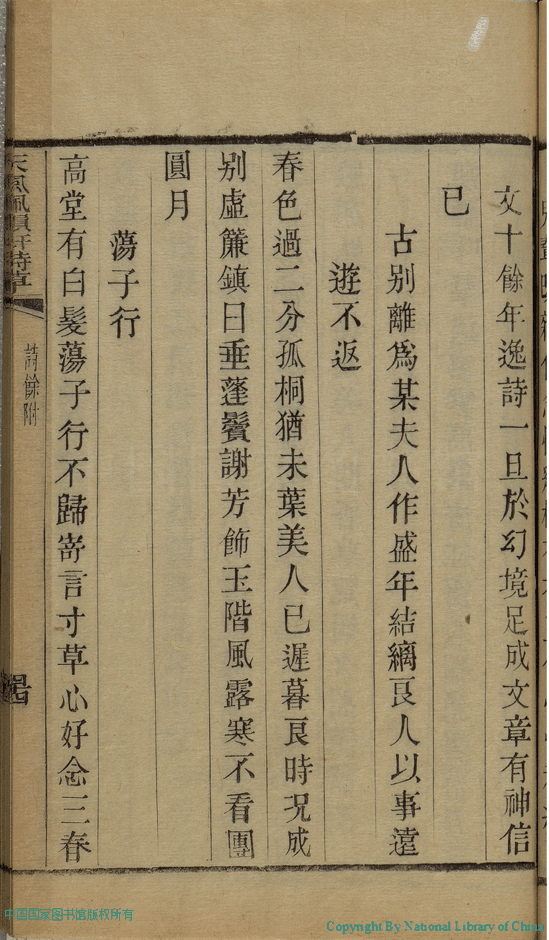 文十餘年逸詩一旦於幻境足成文章有神信
已
古別離為某夫人作盛年結縭良人以事遠
遊不返
春色過二分孤桐猶未葉美人已遲暮良時况成
別虛簾鎮日垂蓬鬢謝芳飾玉階風露寒不看團
圓月
蕩子行
高堂有白髮蕩子行不歸寄言寸草心好念三春
詩餘附
中国国家图书馆版权所有
Copyright By National Library of China